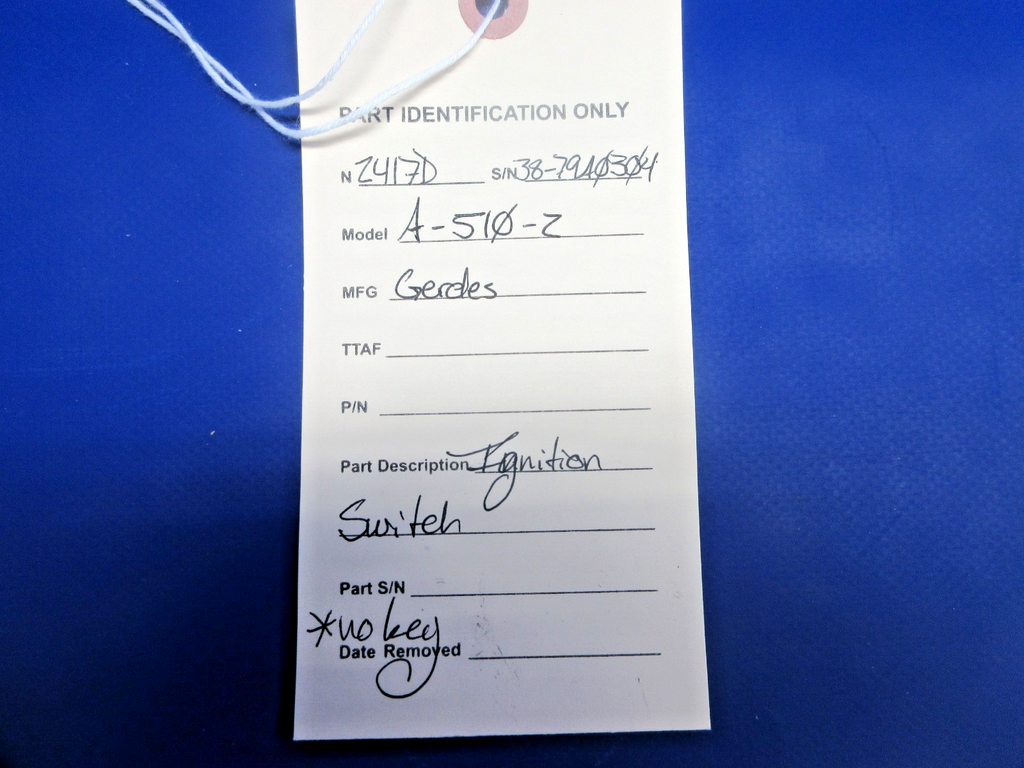 PART IDENTIFICATION ONLY
N 2417D S/N 38-79A0304
Model A-510-2
MFG Gerdes
TTAF
P/N
Part Description Ignition
Switch
Part S/N
*no key
Date Removed